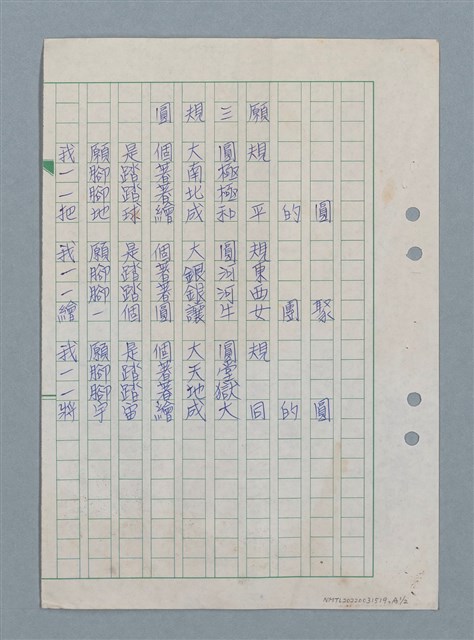 圓規三願
我願是個大圓規
一腳踏著南極
一腳踏著北極
把地球繪成和平的圓
我願是個大圓規
一腳踏著銀河東
一腳踏著銀河西
繪一個圓讓牛女團聚
我願是個大圓規
一腳踏著天堂
一腳踏著地獄
將宇宙繪成大同的圓
NMTL20220031519